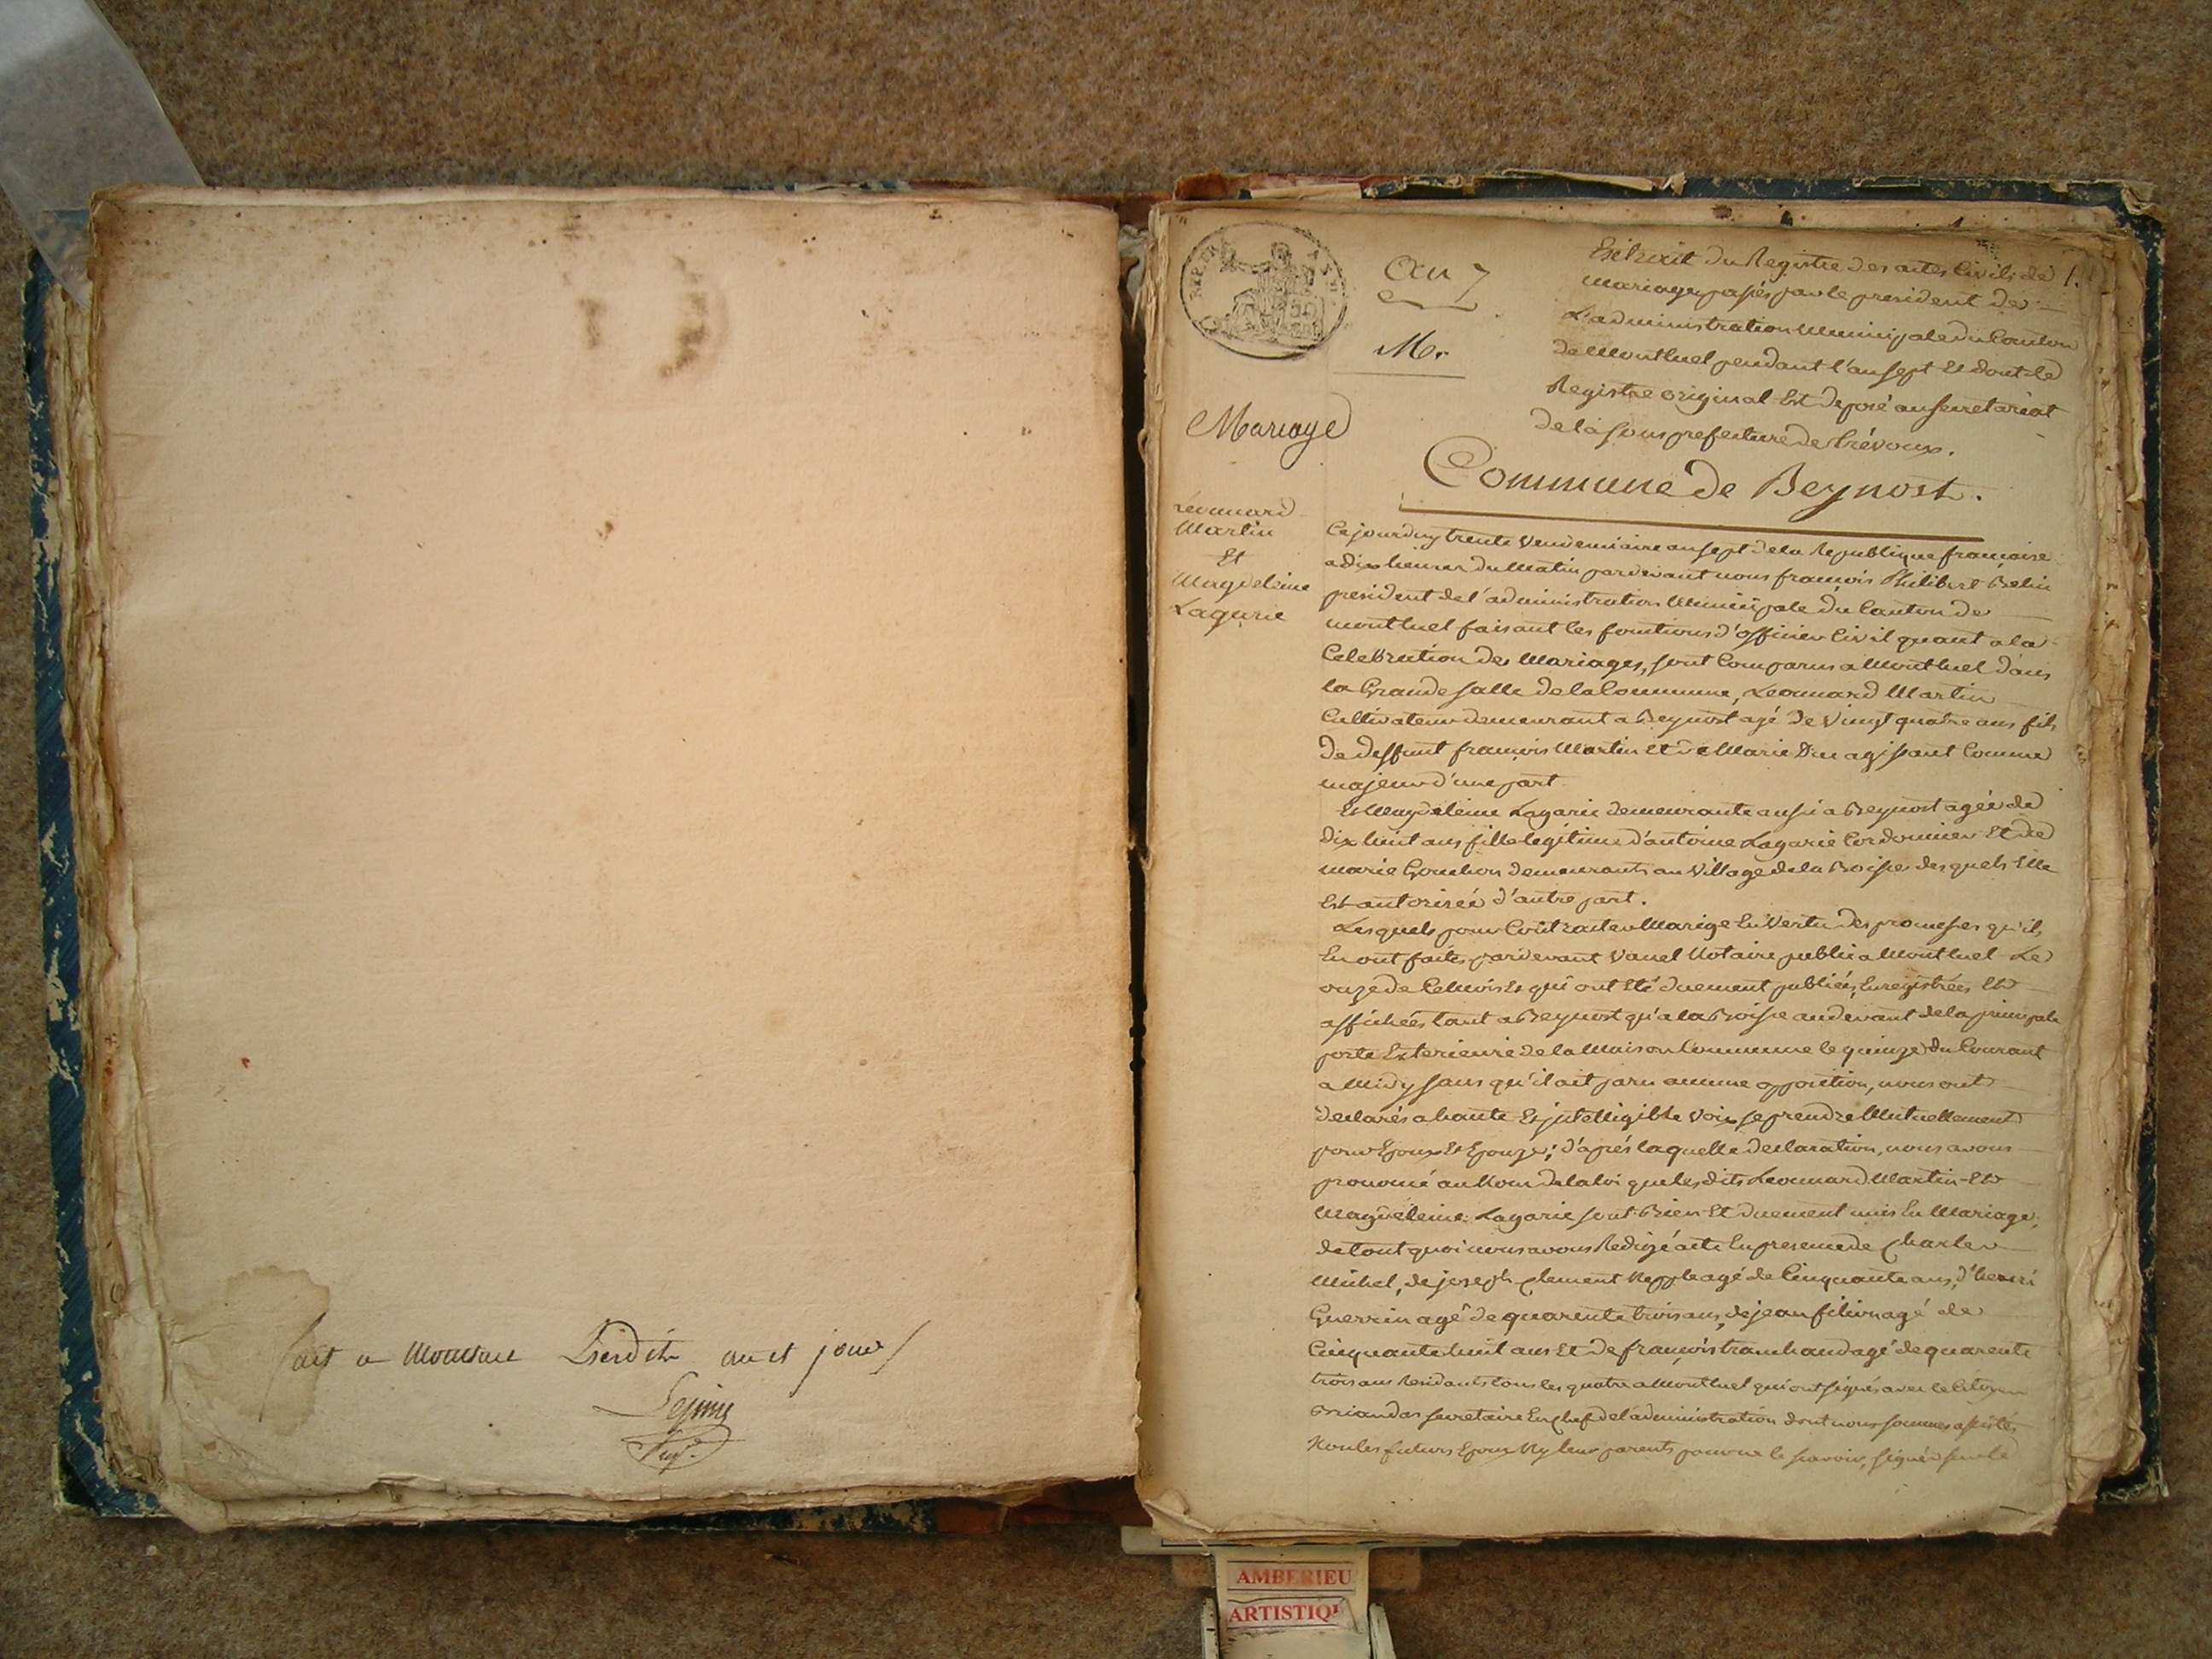 fait a Montluel Lesdits an et jour
An 7
M.
1.
Extrait du Registre des actes Civils de
mariages passés par le president de
L'administration Municipale du Canton
de Montluel pendant l'an sept Et dont le
Registre original Est deposé au secretariat
de la sous prefecture de trévoux.
Mariage
Commune de Beynost.
Léonnard
Martin
Et
Magdeleine
Lagarie
Cejourduy trente Vendemiaire an sept de la Republique francaise
a dix heures du Matin pardevant nous françois Philibert Belin
president de l'administration Municipale du Canton de
montluel faisant les fonctions d'officier Civil quant a la
Celebration des Mariages, sont Comparus a Montluel dans
la Grande salle de la Commune, Léonnard Martin
Cultivateur demeurant a Beynost agé de Vingt quatre ans fils
de deffunt françois Martin et de Marie agissant Comme
majeur d'une part
Et Magdeleine Lagarie demeurante aussi a Beynost agée de
dix huit ans fille legitime d'antoine Lagarie Cordonnier Et de
marie Goubon demeurants au Village de la Boisse desquels Elle
Est autorisée d'autre part.
Lesquels pour Contracter Marige En Vertu des promesses qu'ils
En ont faites pardevant Vanel Notaire public a Montluel Le
onze de Ce Mois Et qui ont Eté duement publiées, Enregistrées Et
affichées tant a Beynost qu'a la Boisse au devant de la principale
porte Exterieure de la Maison Commune le quinze du Courant
a Midy sans qu'il ait paru aucune opposition, nous ont
declarés a haute Et jntelligible Voix se prendre Mutuellement
pour Epoux Et Epouze; d'après laquelle declaration, nous avons
prononcé au Nom de la loi que lesdits Leonnard Martin Et
Magdeleine Lagarie sont Bien Et duement unis En Mariage;
de tout quoi nous avons Redigé acte En presence de Charles
Michel, de joseph Clement agé de Cinquante ans, d'henri
Guerrin agé de quarente trois ans, de jean filion agé de
Cinquante huit ans Et de françois tranchand agé de quarente
trois ans Residants tous les quatre a Montluel qui ont signés avec le Citoyen
Briandas secretaire En chef de l'administration dont nous sommes assistés
Non les futurs Epoux Ny leurs parents pour ne le scavoir, signé sur le
AMBERIEU
ARTISTIQ